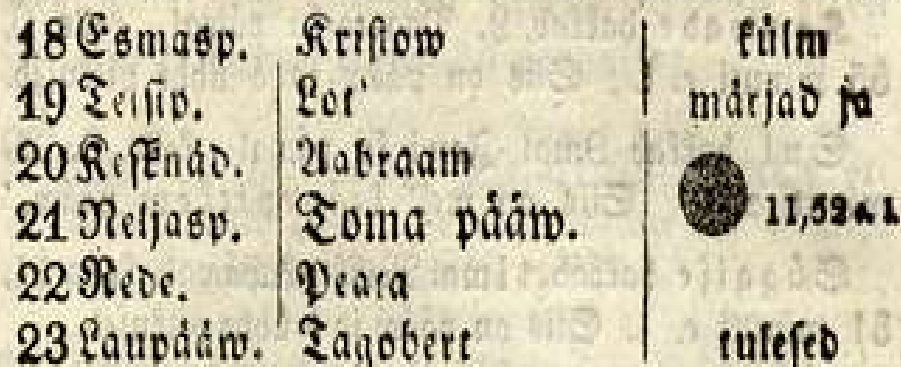 18 Esmasp. Kristow külm
19 Teisip. Lot' märjad ja
20 Kesknäd. Aabraam
21 Neljasp. Toma pääw. 11,52 e. l.
22 Rede. Peata
23 Laupääw. Tagobert tulesed